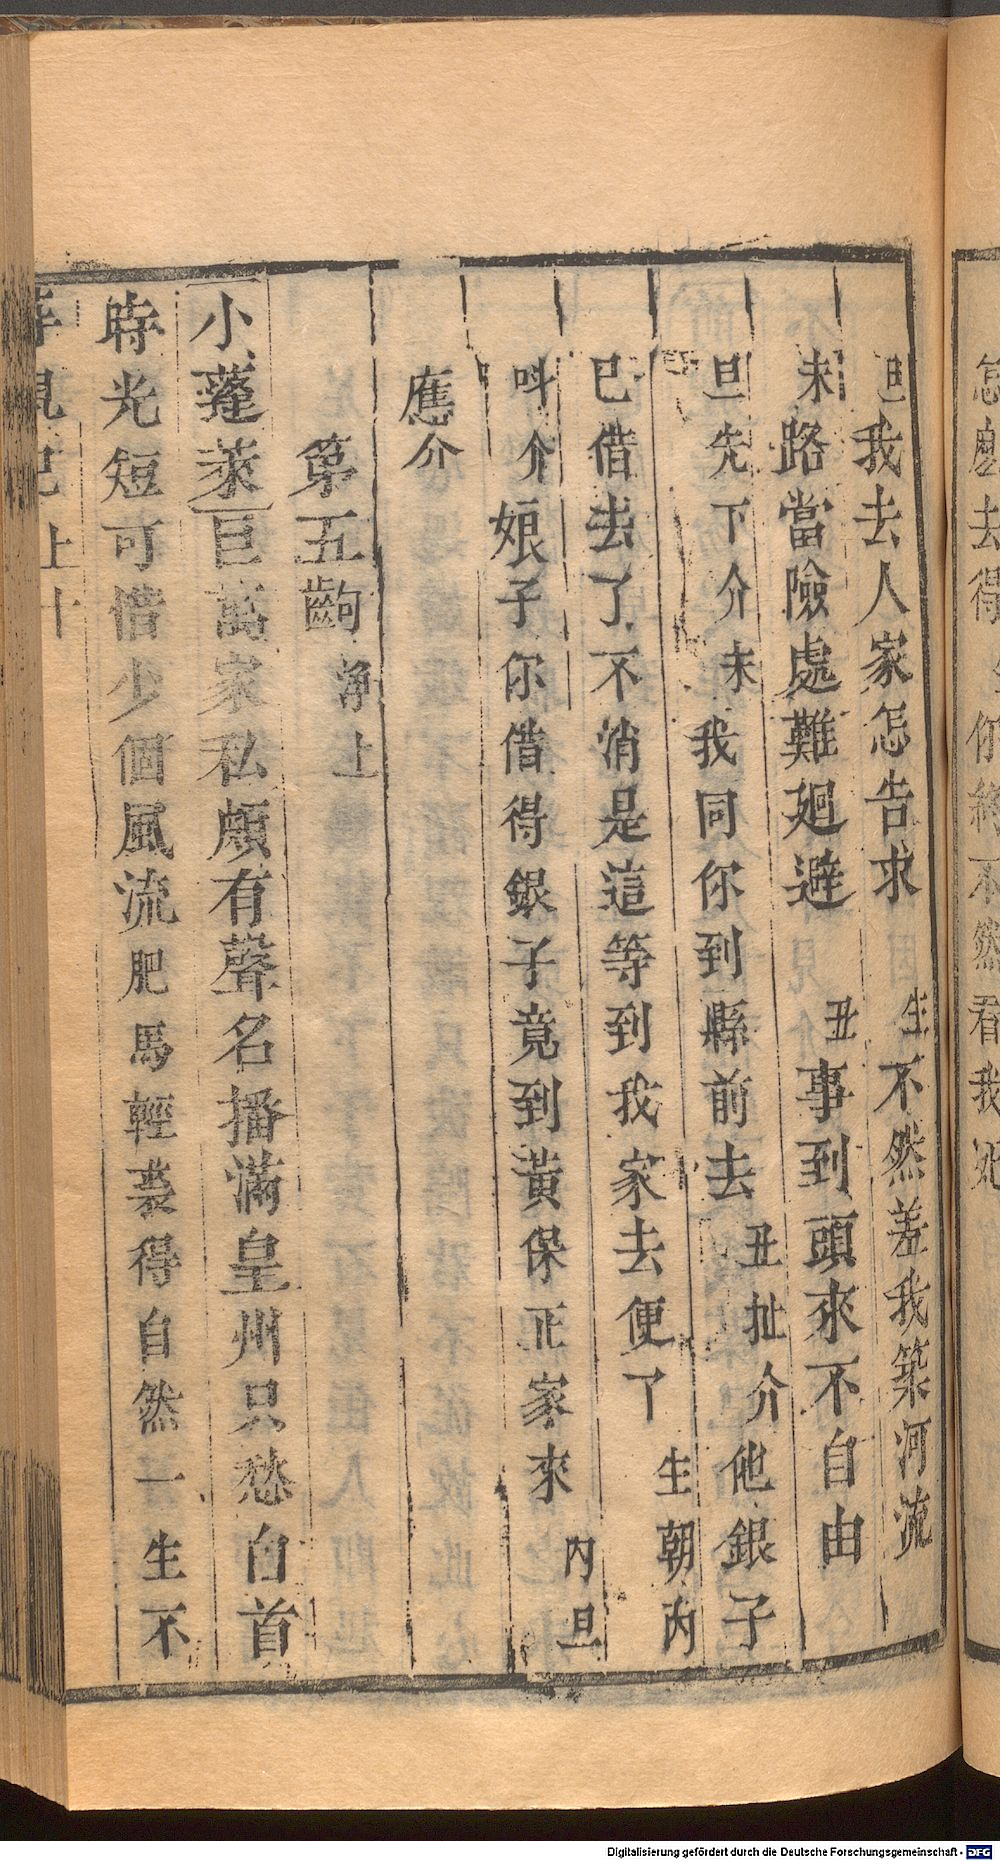 怎麽去得 你終不然看我死
旦我去人家怎告求 生不然羞我築河流
末路當險處難廻避 丑事到頭來不自由
旦先下介末我同你到縣前去丑扯介他銀子
已借去了不消是這等到我家去便了 生朝内
呌介娘子你借得銀子竟到黃保正家來 内旦
應介
第五齣 淨上
小蓬萊巨萬家私頗有聲名播滿皇州只愁白首
時光短可惜少個風流肥馬輕裘得自然一生不
上十
Digitalisierung gefördert durch die Deutsche Forschungsgemeinschaft - DFG